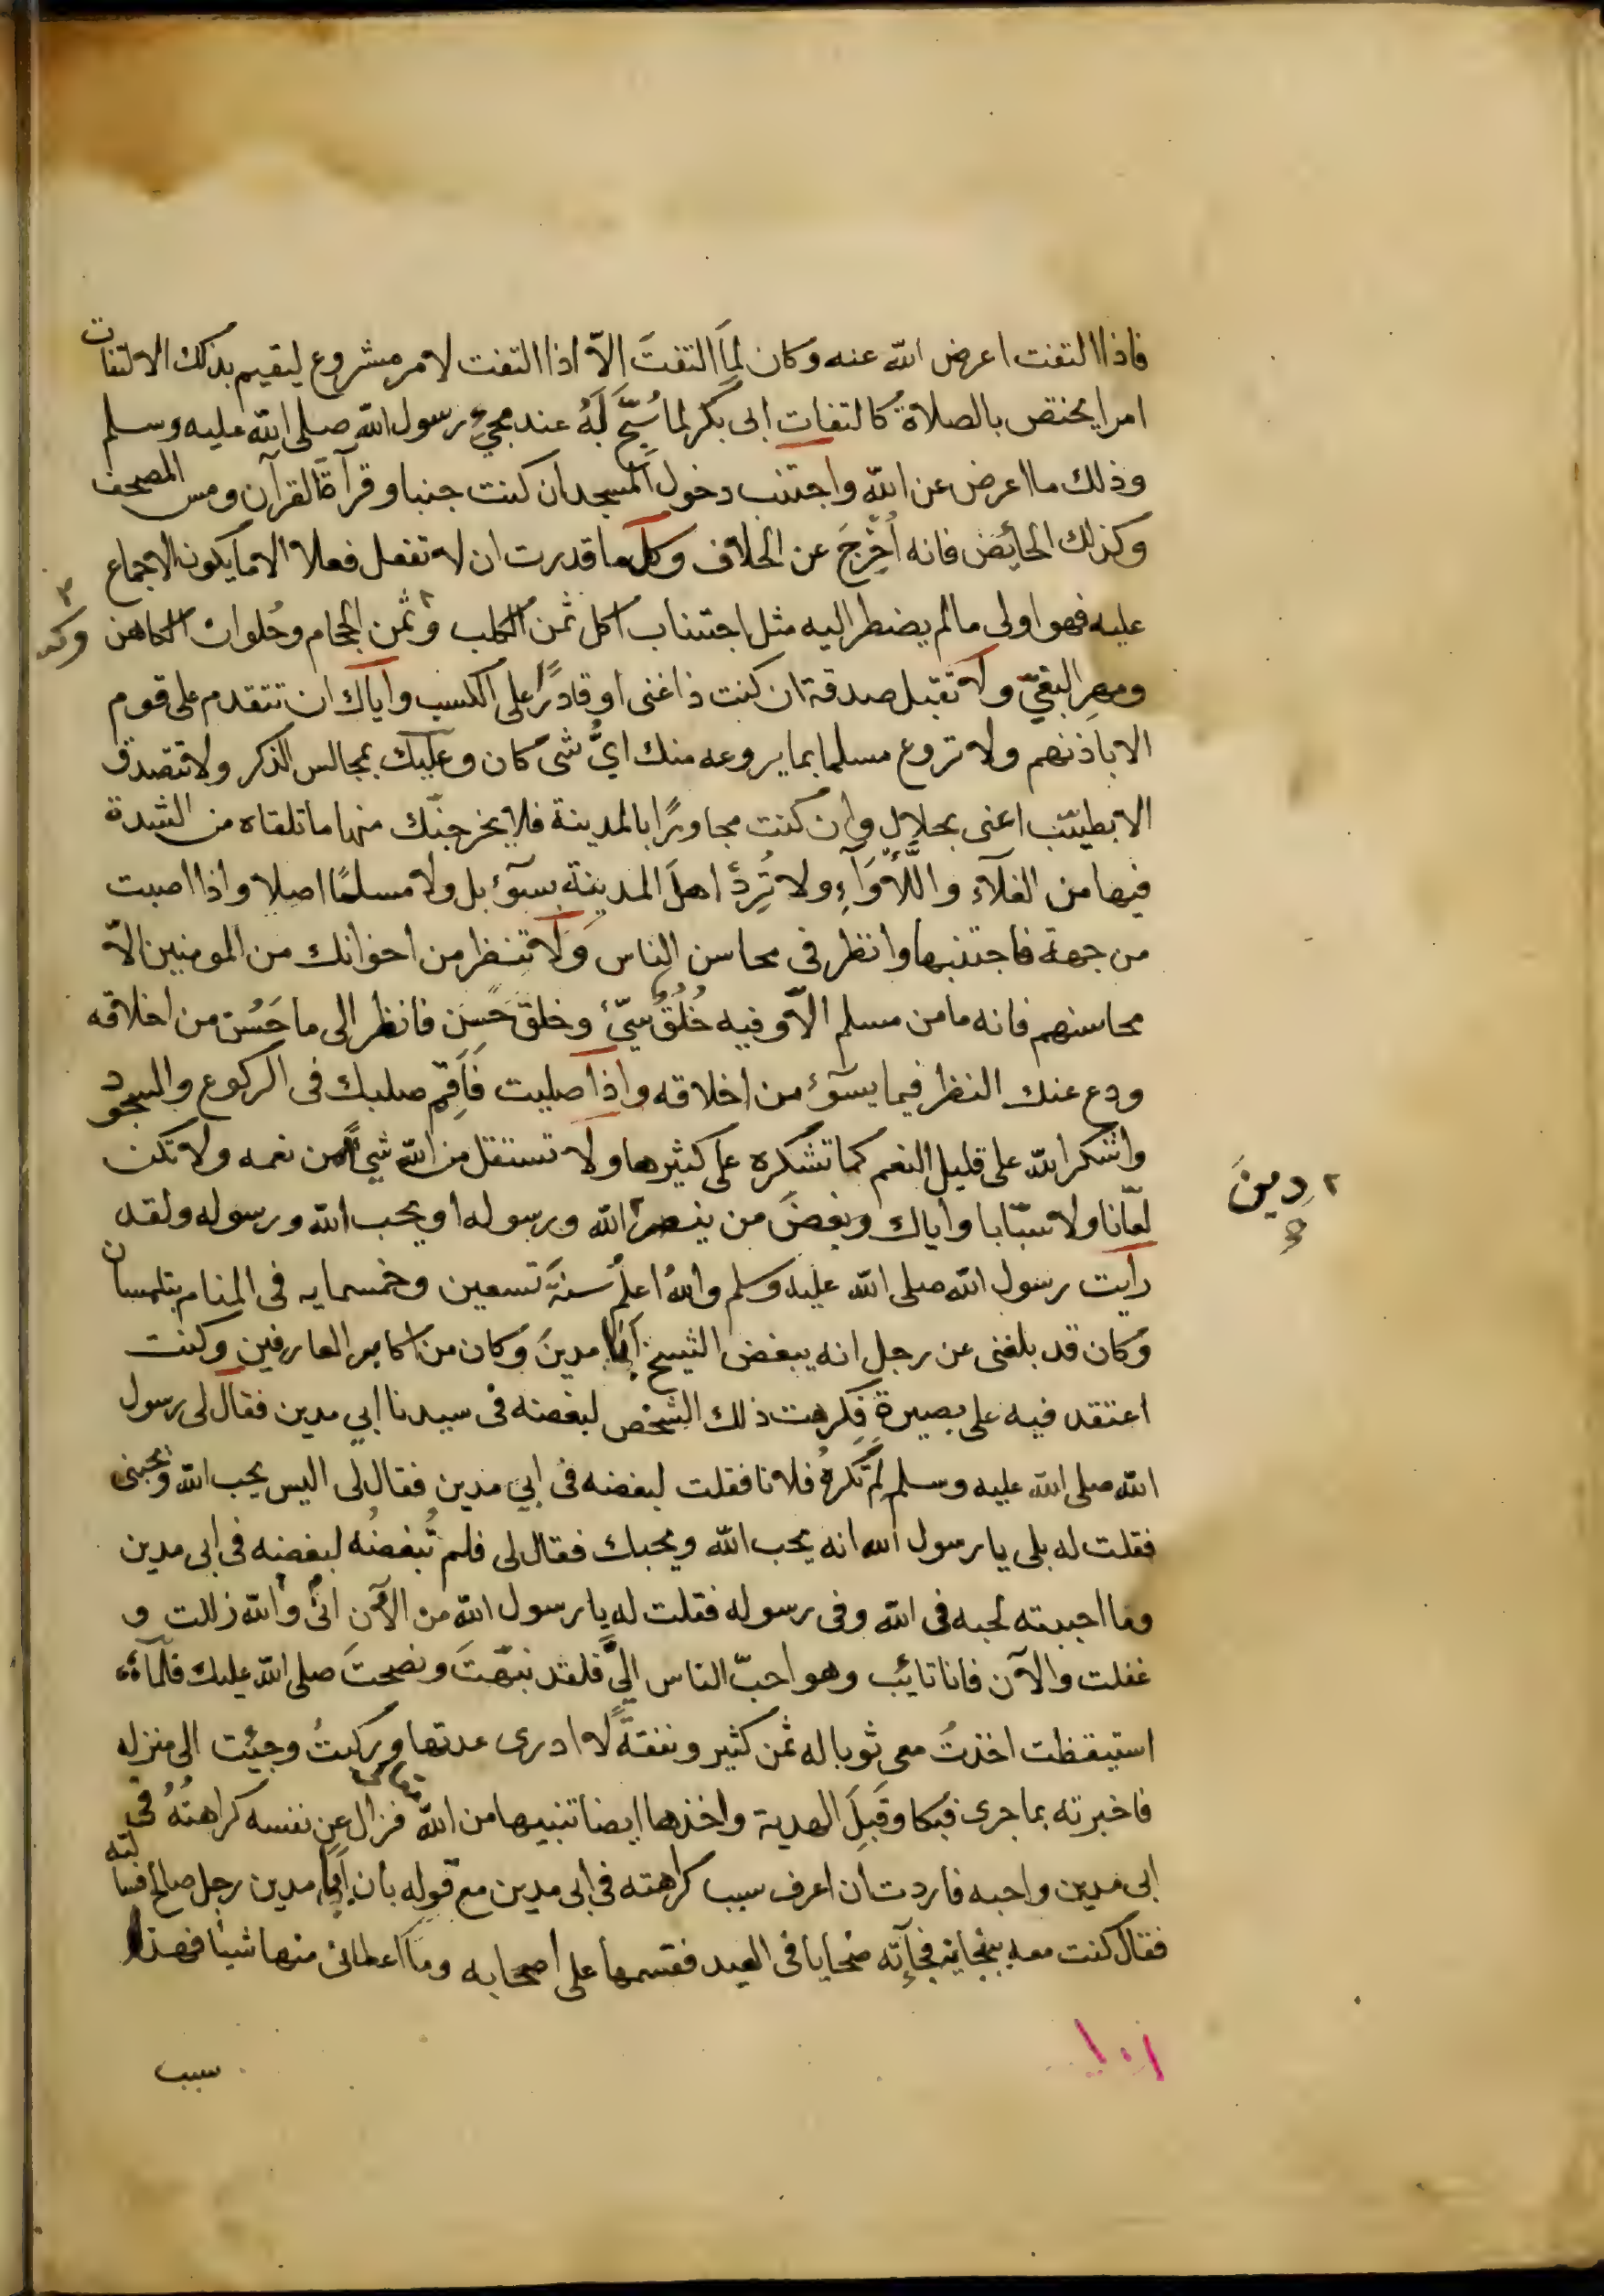 فاذا التفت اعرض الله عنه وكان لِمَا التفتَ الاّ اذا التفت لامر مشروع ليقيم بذلك الالتفات
امرا يختص بالصلاة كالتفات ابى بكر لما سُبِّحَ لَهُ عند مجيءِ رسول الله صلى الله عليه وسلم
وذلك ما اعرض عن الله واجتنب دخول المسجد ان كنت جنبا وقرآةَ القرآن ومس المصحف
وكذلك الحائض فانه أَخْرَجَ عن الخلاف وكل ما قدرت ان لا تفعل فعلا الا ما يكون الاجماع
عليه فهو اولى ما لم يضطر اليه مثل اجتناب اكل ثمن الكلب ٢ وثمن الحجام وحُلوان الكاهن
ومهر البغيّ ولا تقبل صدقة ان كنت ذا غنى او قادرًا على الكسب واياك ان تتقدم على قوم
الا باذنهم ولا تروع مسلما بما يروعه منك ايُّ شى كان وعليك بمجالس الذكر ولا تتصدق
الا بطيّب اعنى بحلال وان كنت مجاورًا بالمدينة فلا يخرجنّك منها ما تلقاه من الشدة
فيها من الغلآء واللَّأْوَآءِ ولا تُرِدْ اهلَ المدينة بسوٓء بل ولا مسلمًا اصلا واذا اصبت
من جهة فاجتنبها وانظر فى محاسن الناس وَلا تنظر من اخوانك من المومنين الاّ
محاسنهم فانه ما من مسلم الاّ وفيه خُلُقٌ سيّئٌ وخلق حَسَن فانظر الى ما حَسُنَ من اخلاقه
ودع عنك النظر فيما يسوٓء من اخلاقه واذا صليت فَأَقِمْ صلبك فى الركوع والسجود
واشكر الله على قليل النعم كما تشكره على كثيرها ولا تستقل من الله شيأً من نعمه ولا تكن
لعّانا ولا سبّابا واياك وبغضَ من ينصر ٢ الله ورسوله او يحب الله ورسوله ولقد
رايت رسول الله صلى الله عليه وسلم والله اعلم سنةَ تسعين وخمسمايه فى المنام بتلمسان
وكان قد بلغنى عن رجل انه يبغض الشيخ أبا مدينَ وكان من اكابر العارفين وكنت
اعتقد فيه على بصيرةٍ فكرهت ذلك الشخص لبغضه فى سيدنا ابي مدين فقال لى رسول
الله صلى الله عليه وسلم لِمَ تَكْرَهُ فلانا فقلت لبغضه فى ابي مدين فقال لى اليس يحب الله ويحبنى
فقلت له بلى يا رسول الله انه يحب الله ويحبك فقال لى فلم تُبغضُه لبغضه فى ابى مدين
وما احببته لحبه فى الله وفى رسوله فقلت له يا رسول الله من الآن انى والله زللت و
غفلت والآن فانا تائب وهو احبّ الناس الىَّ فلقد نبّهتَ ونصحتَ صلى الله عليك فلمّا
استيقظت اخذتُ معى ثوبا له ثمن كثير ونفقةً لا ادرى عدتها وركبتُ وجئت الى منزله
فاخبرته بما جرى فبكا وقَبِلَ الهدية واخذها ايضا تنبيها من الله تعالى فزال عن نفسه كراهتُهُ فى
ابى مدين واحبه فاردت ان اعرف سبب كراهته فى ابى مدين مع قوله بان أبا مدين رجل صالح فسالته
فقال كنت معه ببجاية فجآءته ضحايا فى العيد فقسمها على اصحابه وما اعطانى منها شيئا فهذا
٢ دِمينَ
سبب
١٠١